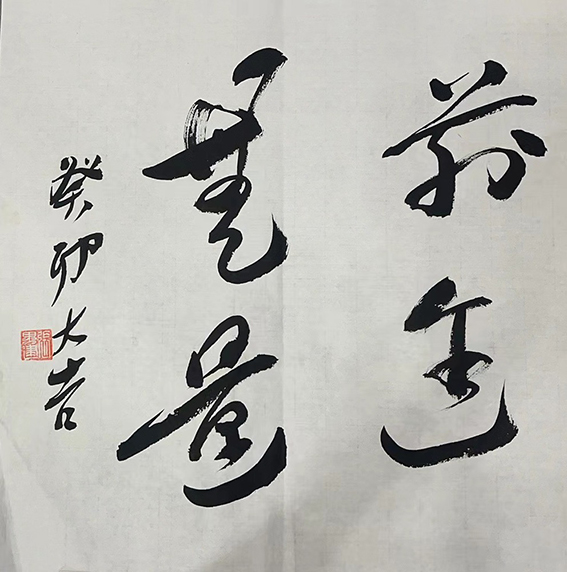 前途
無量
癸卯大吉